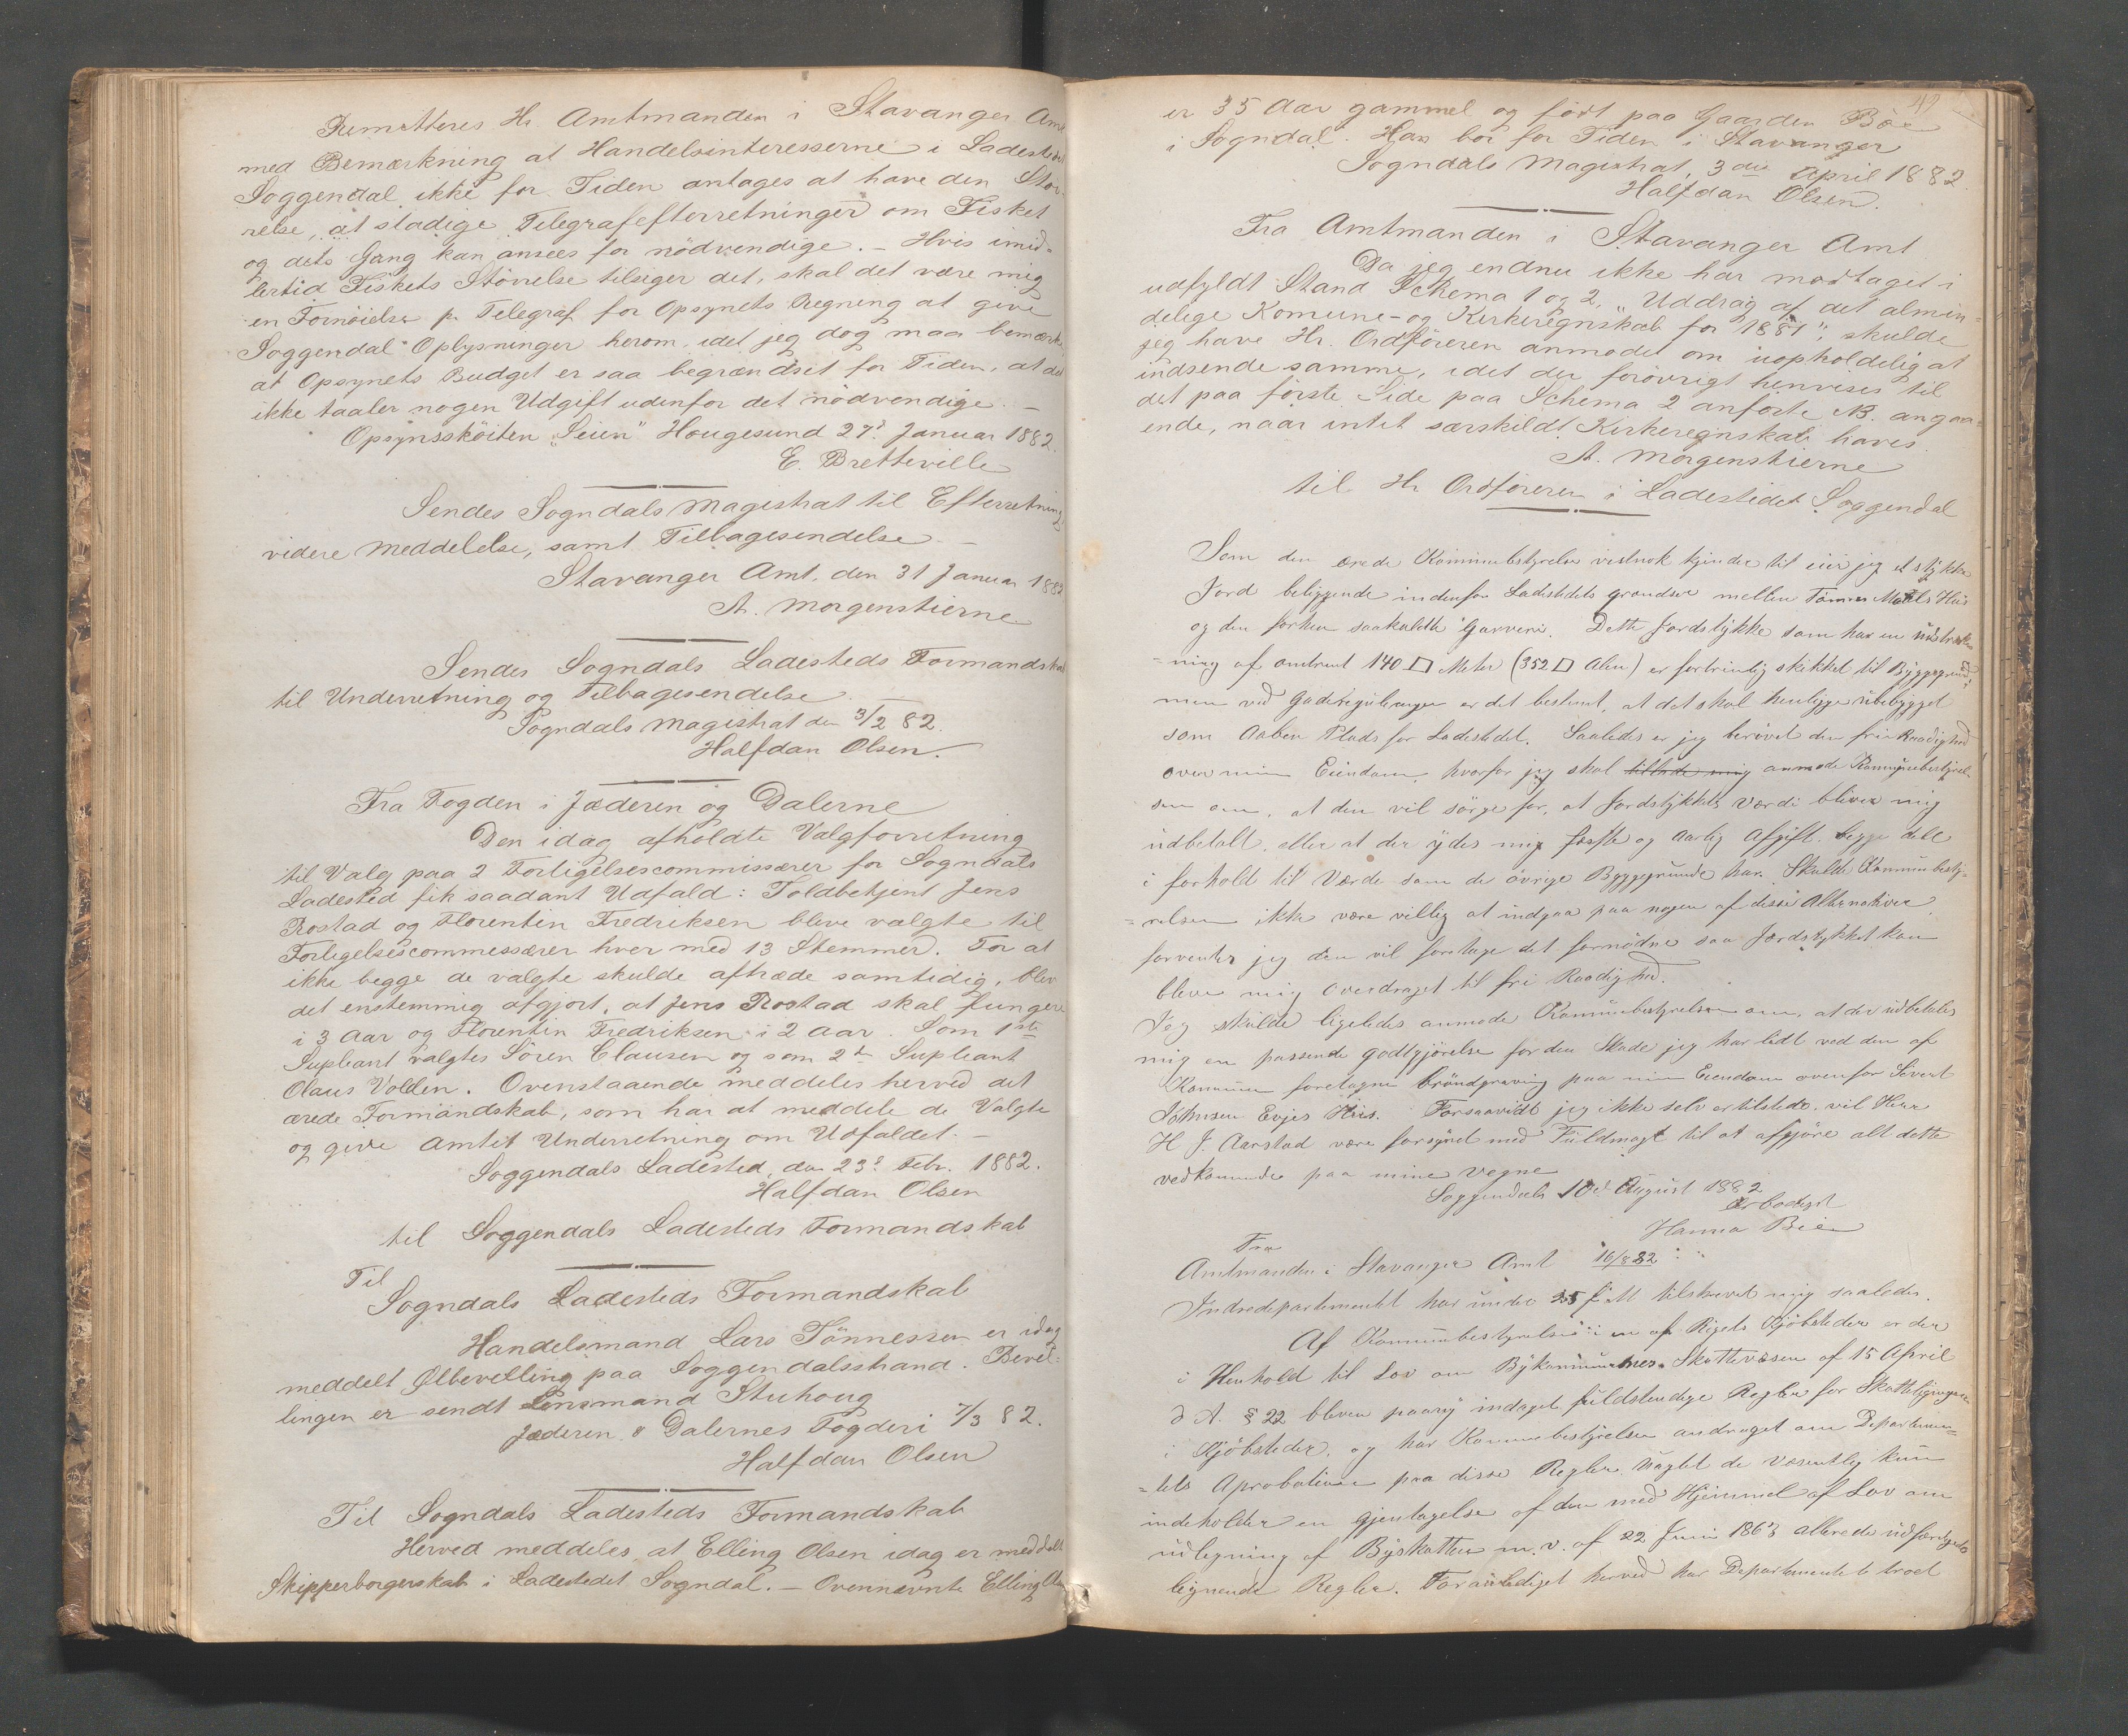 Remitteres Hr. Amtmanden i Stavanger Amt
med Bemærkning at Handelsinteresserne i Ladestedet
Soggendal ikke for Tiden antages at have den Stør-
relse, at stadige Telegrafefterretninger om Fisket
og dets Gang kan ansees for nödvendige. – Hvis imid=
lertid Fiskets Störrelse tilsiger det, skal det være mig
en Fornöielse pr. Telegraf for Opsynets Regning at give
Soggendal Oplysninger herom, idet jeg dog maa bemærke
at Opsynets Budget er saa begrændset for Tiden, at det
ikke taaler nogen Udgift udenfor det nödvendige. –
Opsynssköiten „Seien” Hougesund 27d Januar 1882.
E. Bretteville
Sendes Sogndals Magistrat til Efterretning,
videre Meddelelse, samt Tilbagesendelse. –
Stavanger Amt, den 31 Januar 1882
A. Morgenstierne
Sendes Sogndals Ladesteds Formandskab
til Underretning og Tilbagesendelse.
Sogndals Magistrat den 3/2 82.
Halfdan Olsen.
Fra Fogden i Jæderen og Dalerne
Den idag afholdte Valgforretning
til Valg paa 2 Forligelsescommissærer for Sogndals
Ladested fik saadant Udfald: Toldbetjent Jens
Rostad og Florentin Fredriksen bleve valgte til
Forligelsescommessærer hver med 13 Stemmer. For at
ikke begge de valgte skulde aftræde samtidig, blev
det enstemmig afgjort, at Jens Rostad skal fungere
i 3 Aar og Florentin Fredriksen i 2 Aar. Som 1ste
Supleant valgtes Sören Clausen og som 2de Supleant
Olaus Volden. Ovenstaaende meddeles herved det
ærede Formandskab, som har at meddele de Valgte
og give Amtet Underretning om Udfaldet. –
Soggendals Ladested, den 23d Febr. 1882.
Halfdan Olsen
til Soggendals Ladesteds Formandskab
Til
Sogndals Ladesteds Formandskab
Handelsmand Lars Tönnessen er idag
meddelt Ølbevelling paa Soggendalsstrand. Bevil-
lingen er sendt Lensmand Stuhoug
Jæderen & Dalernes Fogderi 7/3 82.
Halfdan Olsen
Til Sogndals Ladesteds Formandskab
Herved meddeles at Elling Olsen idag er meddelt
Skipperborgerskab i Ladestedet Sogndal. – Ovennævnte Elling Olsen
er 35 Aar gammel og födt paa Gaarden Böe
i Sogndal. Han bor for Tiden i Stavanger
Sogndals Magistrat, 3die April 1882.
Halfdan Olsen.
Fra Amtmanden i Stavanger Amt
Da jeg endnu ikke har modtaget i
udfyldt Stand Schema 1 og 2, „Uddrag af det almin=
delige Komune- og Kirkeregnskab for 1881”, skulde
jeg have Hr. Ordföreren anmodet om uopholdelig at
indsende samme, idet der forövrigt henvises til
det paa förste Side paa Schema 2 anförte NB. angaa=
ende, naar intet særskildt Kirkeregnskab haves.
A. Morgenstierne
til Hr. Ordföreren i Ladestedet Soggendal
Som den ærede Kommunebestyrelse vistnok kjender til eier jeg et stykke
Jord beliggende indenfor Ladestedets grændser mellem Tönnes Hus
og den forhen saakaldte Garveri. Dette Jordstykke som har en udstræk-
-ning af omtrent 140 □ Meter (352 □ Alen) er fortrinlig skikket til Byggegrund,
men ved Gaderegulringen er det bestemt, at det skal henligge ubebygget
som Aaben Plads for Ladestedet. Saaledes er jeg berövet den frie Raadighed
over min Eiendom, hvorfor jeg skal tillade mig anmode Kommunebestyrel-
sen om, at den vil sörge for, at Jordstykkets Værdi bliver mig
udbetalt, eller at der ydes mig fæste og aarlig Afgift, begge dele
i forhold til Værde som de övrige Byggegrunde har. Skulde Kommunebesty-
-relsen ikke være villig at indgaa paa nogen af disse Alternativer
forventer jeg den vil foretage det fornödne saa Jordstykket kan
blive mig overdraget til fri Raadighed.
Jeg skulde ligeledes anmode Kommunebestyrelsen om, at der udbetales
mig en passende godtgjörelse for den Skade jeg har lidt ved den af
Kommunen foretagne bröndgraving paa min Eiendom ovenfor Sivert
Johnsen Evjes Hus. Forsaavidt jeg ikke selv er tilstede, vil Herr
H. J. Aarstad være forsynet med Fuldmagt til at afgjöre alt dette
vedkommende paa mine Vegne
Soggendals 10d August 1882
Ærbödigst
Hanna Bie
Fra
Amtmanden i Stavanger Amt 16/8 82
Indredepartementet har under tilskrevet mig saaledes.
Af Kommunebestyrelsen i en af Rigets Kjöbsteder er der
i Henhold til Lov om Bykommunernes Skattevæsen af 15 April
d. A. § 22 bleven paany indtaget fuldstendige Regler for Skatteligningen
i Kjöbsteder, og har Kommunebestyrelsen andraget om Departemen-
-tets Aprobation paa disse Regler, uagtet de væsentlig kun
indeholder en gjentagelse af den med Hjemmel af Lov om
udlegning af Byskatten m.v. af 22 Juni 1863 allerede udfærdigede
lignende Regler. Foranlediget herved har Departementet troet